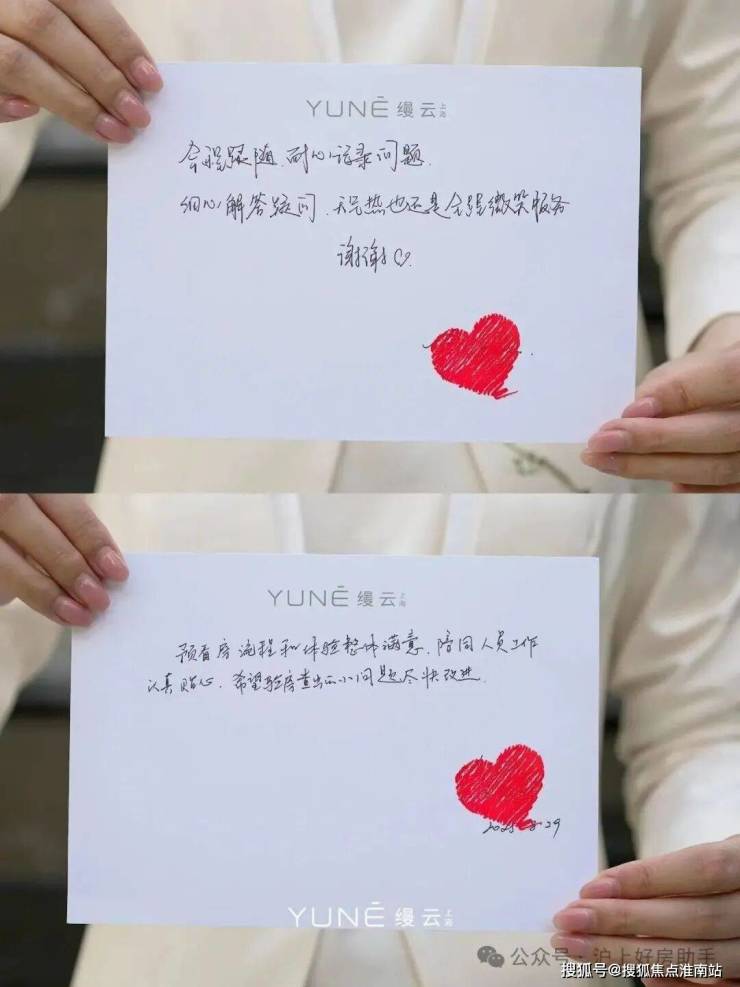 YUNÉ 缦云 上海
全程跟随、耐心记录问题.
细心解答疑问、天气热也还是全程微笑服务
谢谢
YUNÉ 缦云 上海
预看房流程和体验整体满意，陪同人员工作
认真贴心，希望验房查出的小问题尽快改进.
2025-8-29
YUNÉ 缦云 上海
公众号·沪上好房助手
搜狐号@搜狐焦点淮南站